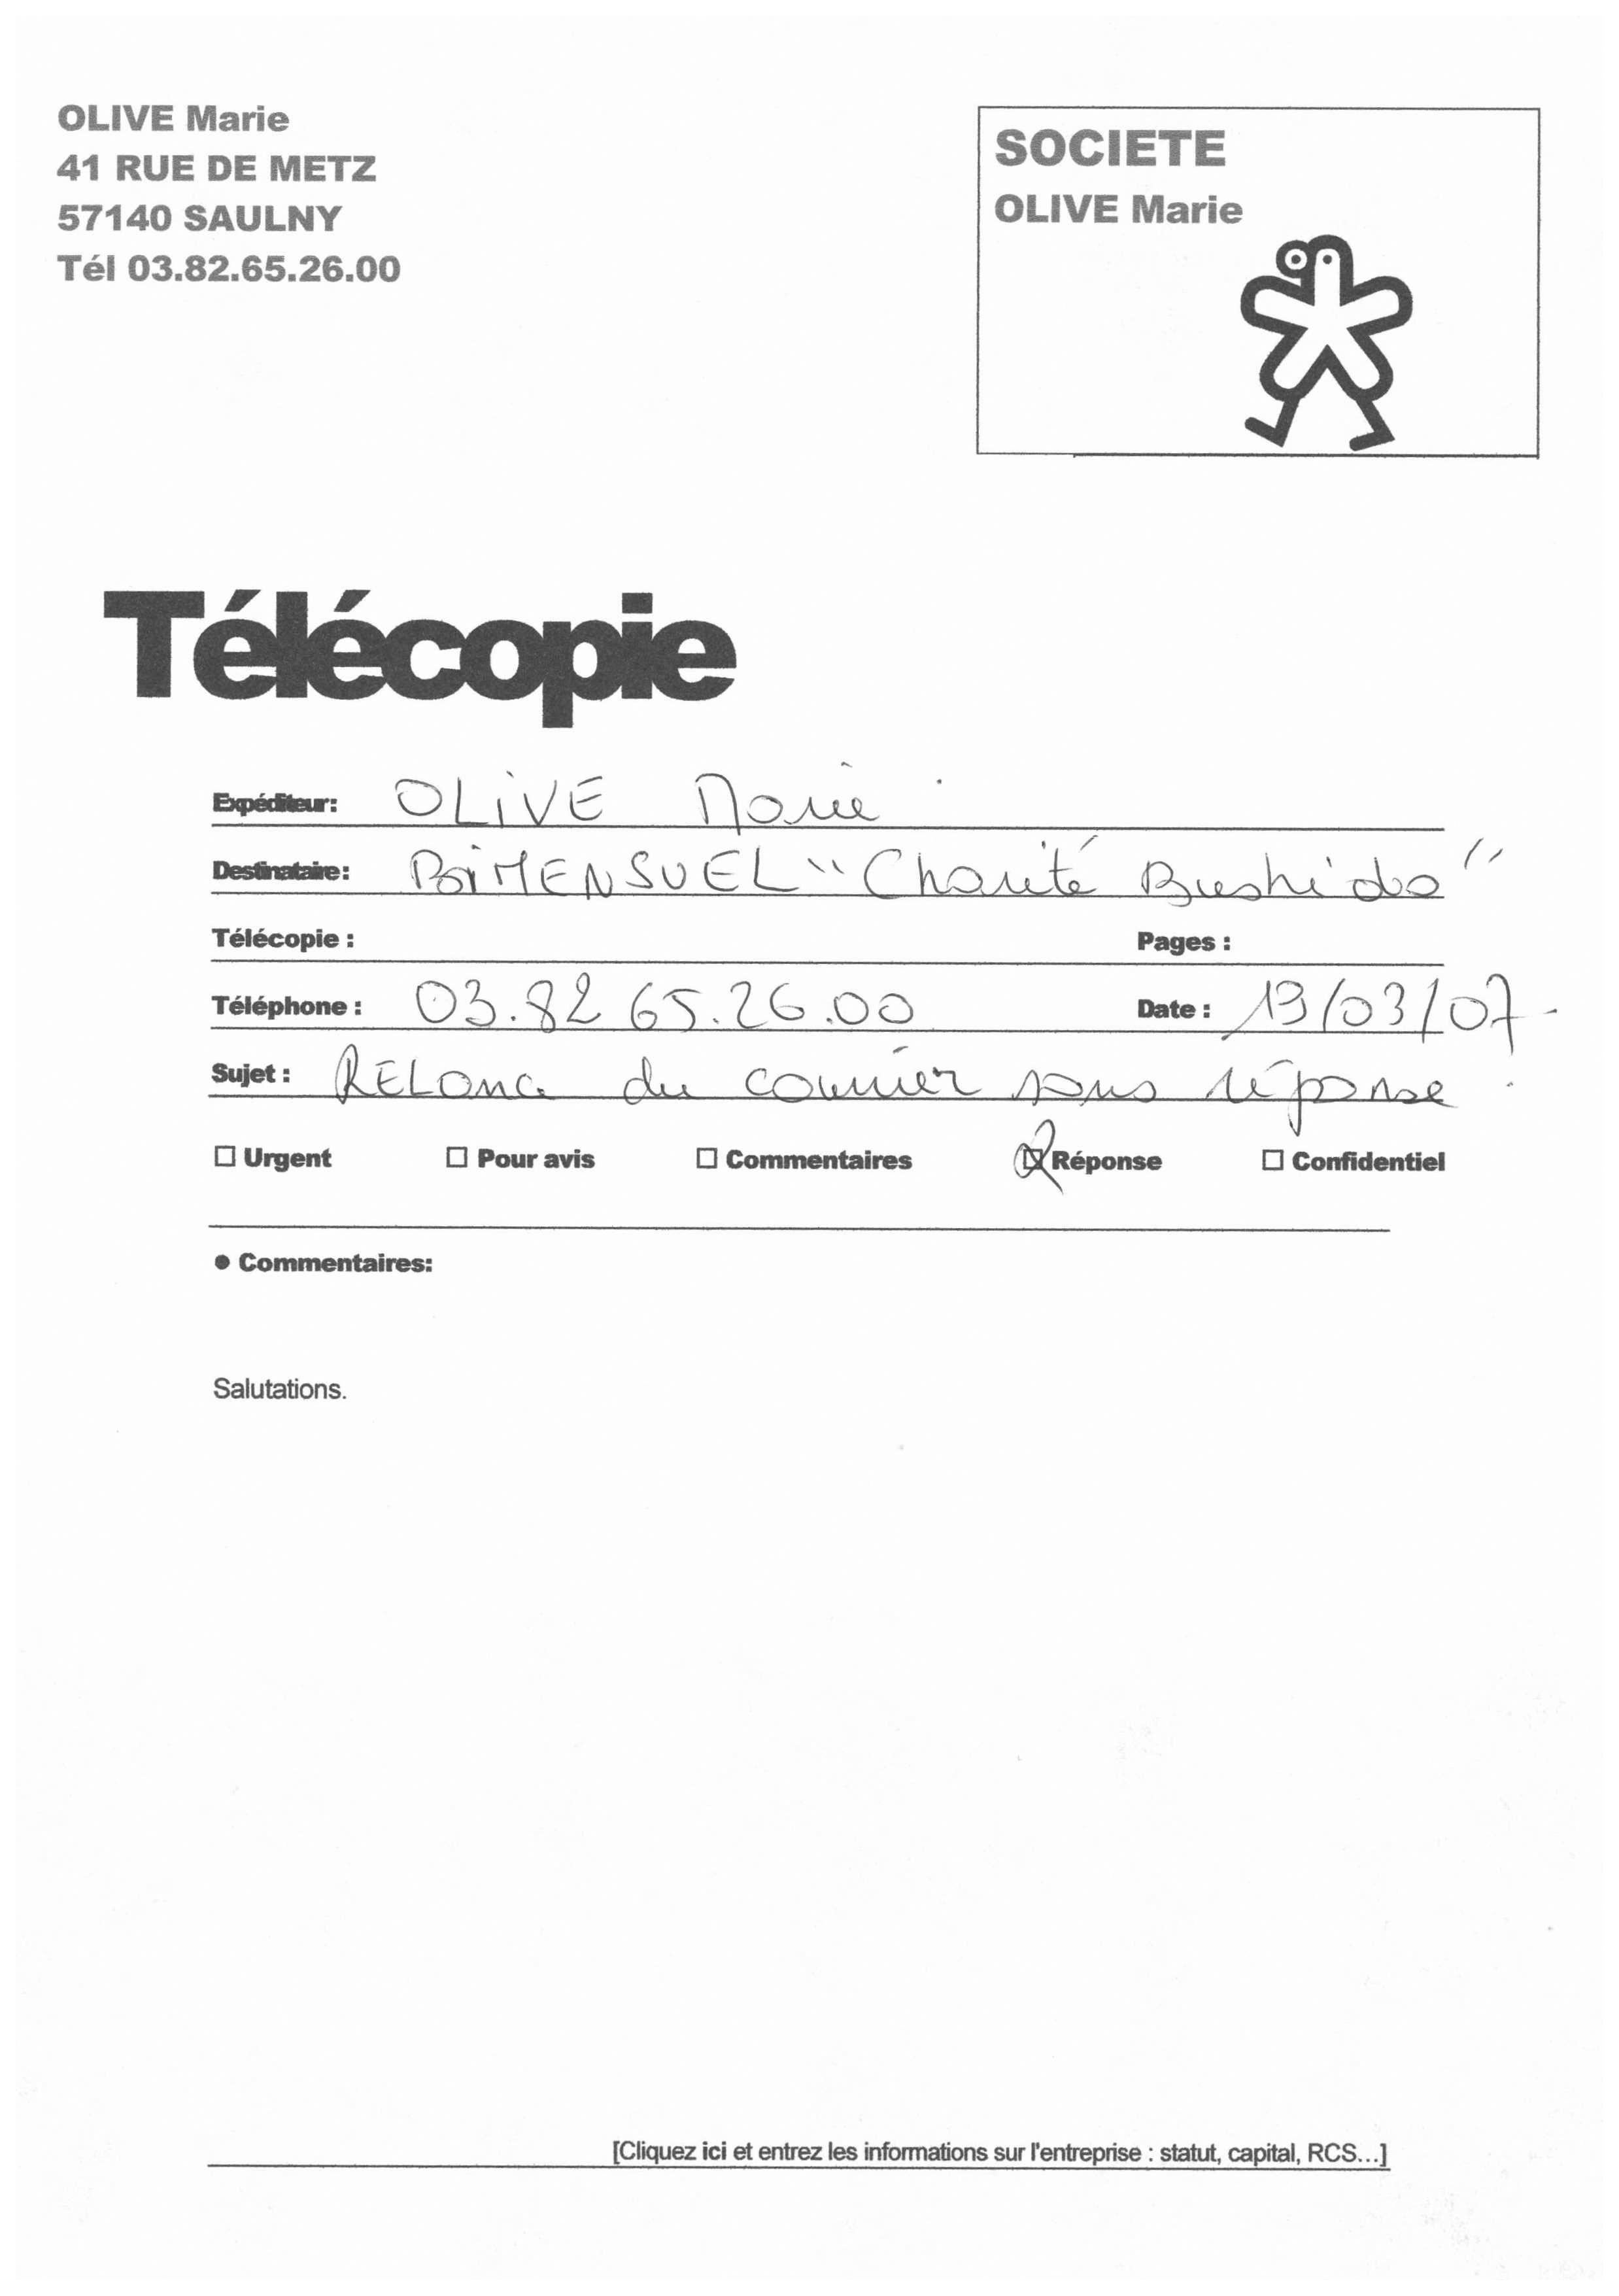 OLIVE Marie
41 RUE DE METZ
57140 SAULNY
Tél 03.82.65.26.00
SOCIETE
OLIVE Marie
Télécopie
Expéditeur: OLIVE Marie
Destinataire: BIMENSUEL "Charité Bushido"
Télécopie : Pages :
Téléphone : 03.82 65.26.00 Date : 19/03/07
Sujet : RELance du courrier sans réponse
Urgent Pour avis Commentaires Réponse Confidentiel
Commentaires:
Salutations.
[Cliquez ici et entrez les informations sur l'entreprise : statut, capital, RCS...]